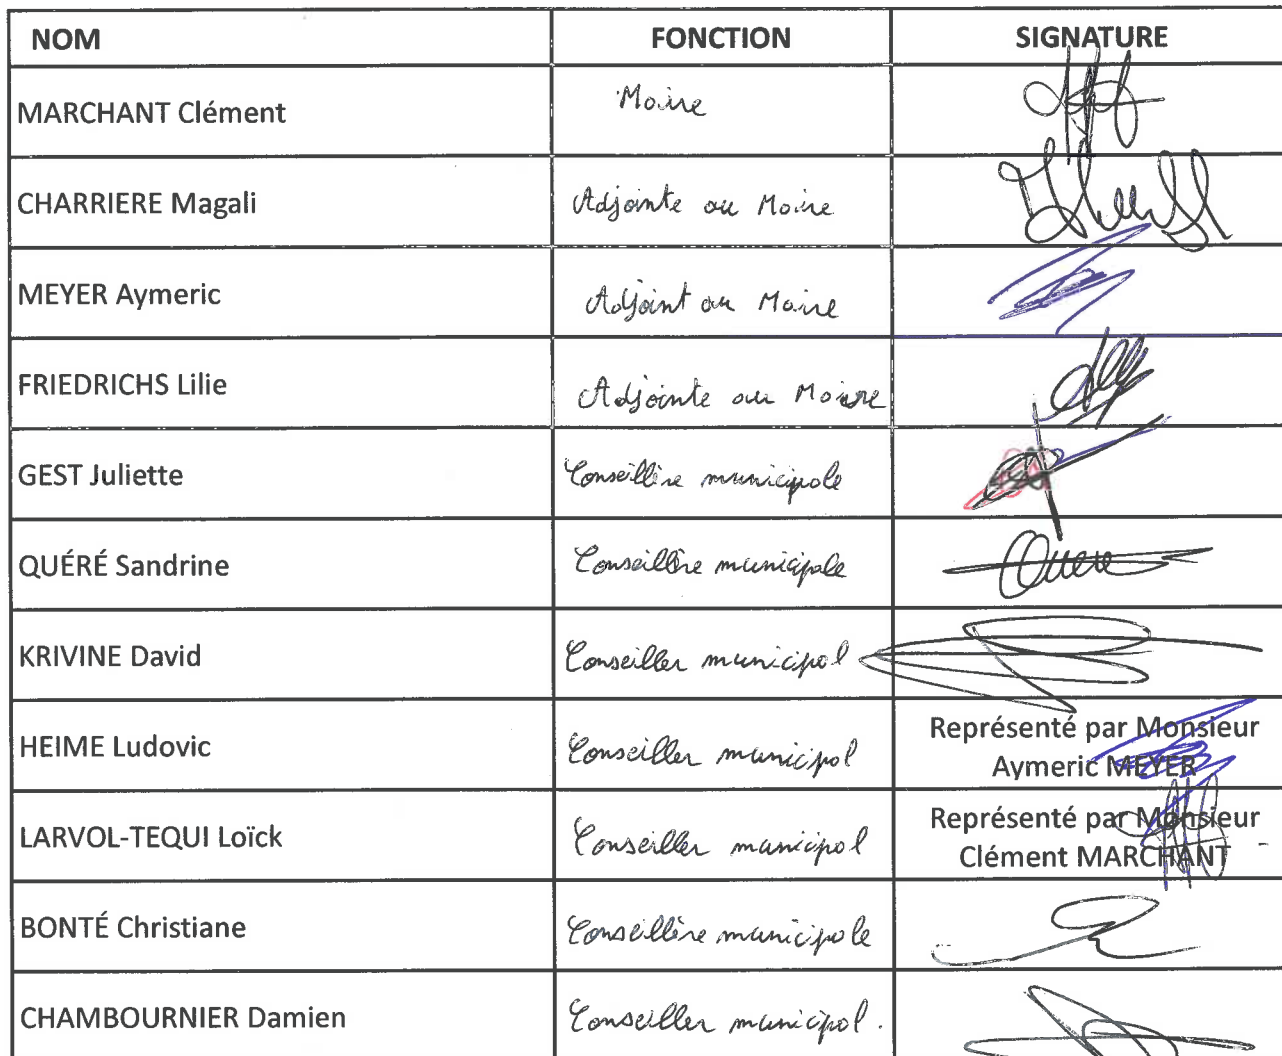 NOM FONCTION SIGNATURE
MARCHANT Clément Maire
CHARRIERE Magali Adjointe au Maire
MEYER Aymeric Adjoint au Maire
FRIEDRICHS Lilie Adjointe au Maire
GEST Juliette Conseillère municipale
QUÉRÉ Sandrine Conseillère municipale Quere
KRIVINE David Conseiller municipal
HEIME Ludovic Conseiller municipal Représenté par Monsieur
Aymeric MEYER
LARVOL-TEQUI Loïck Conseiller municipal Représenté par Monsieur
Clément MARCHANT
BONTÉ Christiane Conseillère municipale
CHAMBOURNIER Damien Conseiller municipal.